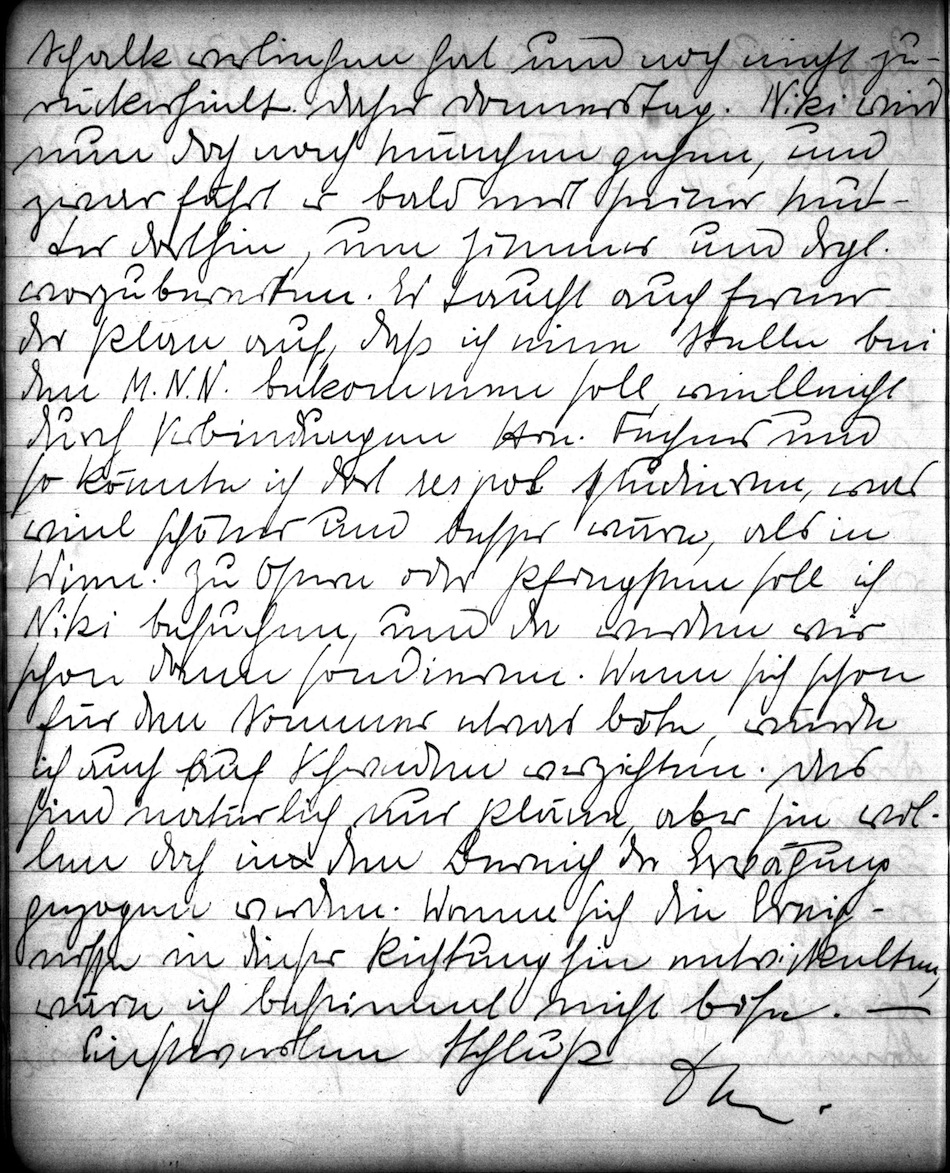 Schalk verliehen hat und noch nicht zu-
rückerhielt. Daher Donnerstag. Niki wird
nun doch nach München gehen, und
zwar fährt er bald mit seiner Mut-
ter dorthin, um Zimmer und drgl.
vorzubereiten. Es taucht auch ferner
der Plan auf, daß ich eine Stelle bei
den M.N.N. bekommen soll, vielleicht
durch Verbindungen Hrn. und
so könnte ich dort studieren, was
viel schöner und besser wäre, als in
Wien. Zu Ostern oder Pfingsten soll ich
Niki besuchen, und da werden wir
schon dann sondieren. Wenn sich schon
für den Sommer etwas böte, würde
ich auch auf Schweden verzichten. Das
sind natürlich nur Pläne, aber sie wol-
len doch in den Bereich der Erwägung
gezogen werden. Wenn sich die Ereig-
nisse in dieser Richtung hin entwickelten,
wäre ich bestimmt nicht böse. —
Einstweilen Schluß